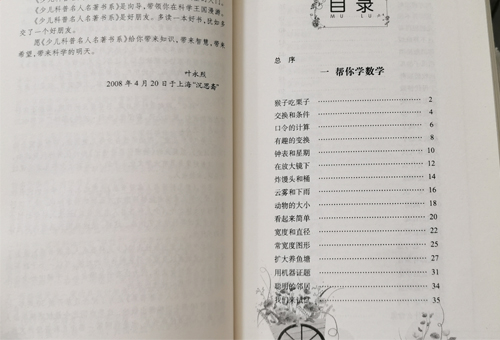 《少儿科普名人名著书系》是向导,带领你在科学王国漫游。
《少儿科普名人名著书系》是好朋友。多读一本好书,犹如多
交了一个好朋友。
愿《少儿科普名人名著书系》给你带来知识,带来智慧,带来
希望,带来科学的明天。
叶永烈
2008 年 4 月 20 日于上海“沉思斋”
目录
MU LU
总 序
一 帮你学数学
猴子吃栗子 2
交换和条件 4
口令的计算 6
有趣的变换 8
钟表和星期 10
在放大镜下 12
炸馒头和桶 14
云雾和下雨 16
动物的大小 18
看起来简单 20
宽度和直径 22
常宽度图形 25
扩大养鱼塘 27
用机器证题 31
聪明的邻居 34
我们来试试 35